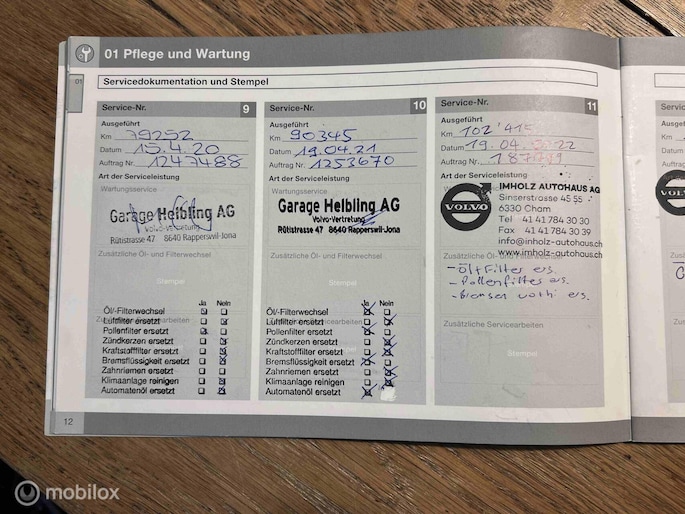 01 Pflege und Wartung
01
Servicedokumentation und Stempel
Service-Nr. 9
Ausgeführt
Km 79252
Datum 15.4.20
Auftrag Nr. 1247488
Art der Serviceleistung
Wartungsservice
Garage Helbling AG
Volvo-Vertretung
Rütistrasse 47 8640 Rapperswil-Jona
Zusätzliche Öl- und Filterwechsel
Stempel
Ja Nein
Öl-/Filterwechsel
Luftfilter ersetzt
Pollenfilter ersetzt
Zündkerzen ersetzt
Kraftstofffilter ersetzt
Bremsflüssigkeit ersetzt
Zahnriemen ersetzt
Klimaanlage reinigen
Automatenöl ersetzt
Service-Nr. 10
Ausgeführt
Km 90345
Datum 19.04.21
Auftrag Nr. 1253670
Art der Serviceleistung
Wartungsservice
Garage Helbling AG
Volvo-Vertretung
Rütistrasse 47 8640 Rapperswil-Jona
Zusätzliche Öl- und Filterwechsel
Stempel
Ja Nein
Öl-/Filterwechsel
Luftfilter ersetzt
Pollenfilter ersetzt
Zündkerzen ersetzt
Kraftstofffilter ersetzt
Bremsflüssigkeit ersetzt
Zahnriemen ersetzt
Klimaanlage reinigen
Automatenöl ersetzt
Service-Nr. 11
Ausgeführt
Km 102'415
Datum 19.04.2022
Auftrag Nr.
Art der Serviceleistung
VOLVO
IMHOLZ AUTOHAUS AG
Sinserstrasse 45 55
6330 Cham
Tel 41 41 784 30 30
Fax 41 41 784 39 39
info@imholz-autohaus.ch
www.imholz-autohaus.ch
Zusätzliche Öl- und Filterwechsel
- Öl+Filter ers.
- Pollenfilter ers.
Zusätzliche Servicearbeiten
Stempel
12
mobilox